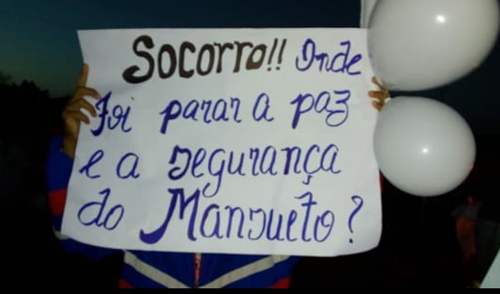 SOCORRO!! Onde
Foi parar a paz
e a segurança
do Mansueto?